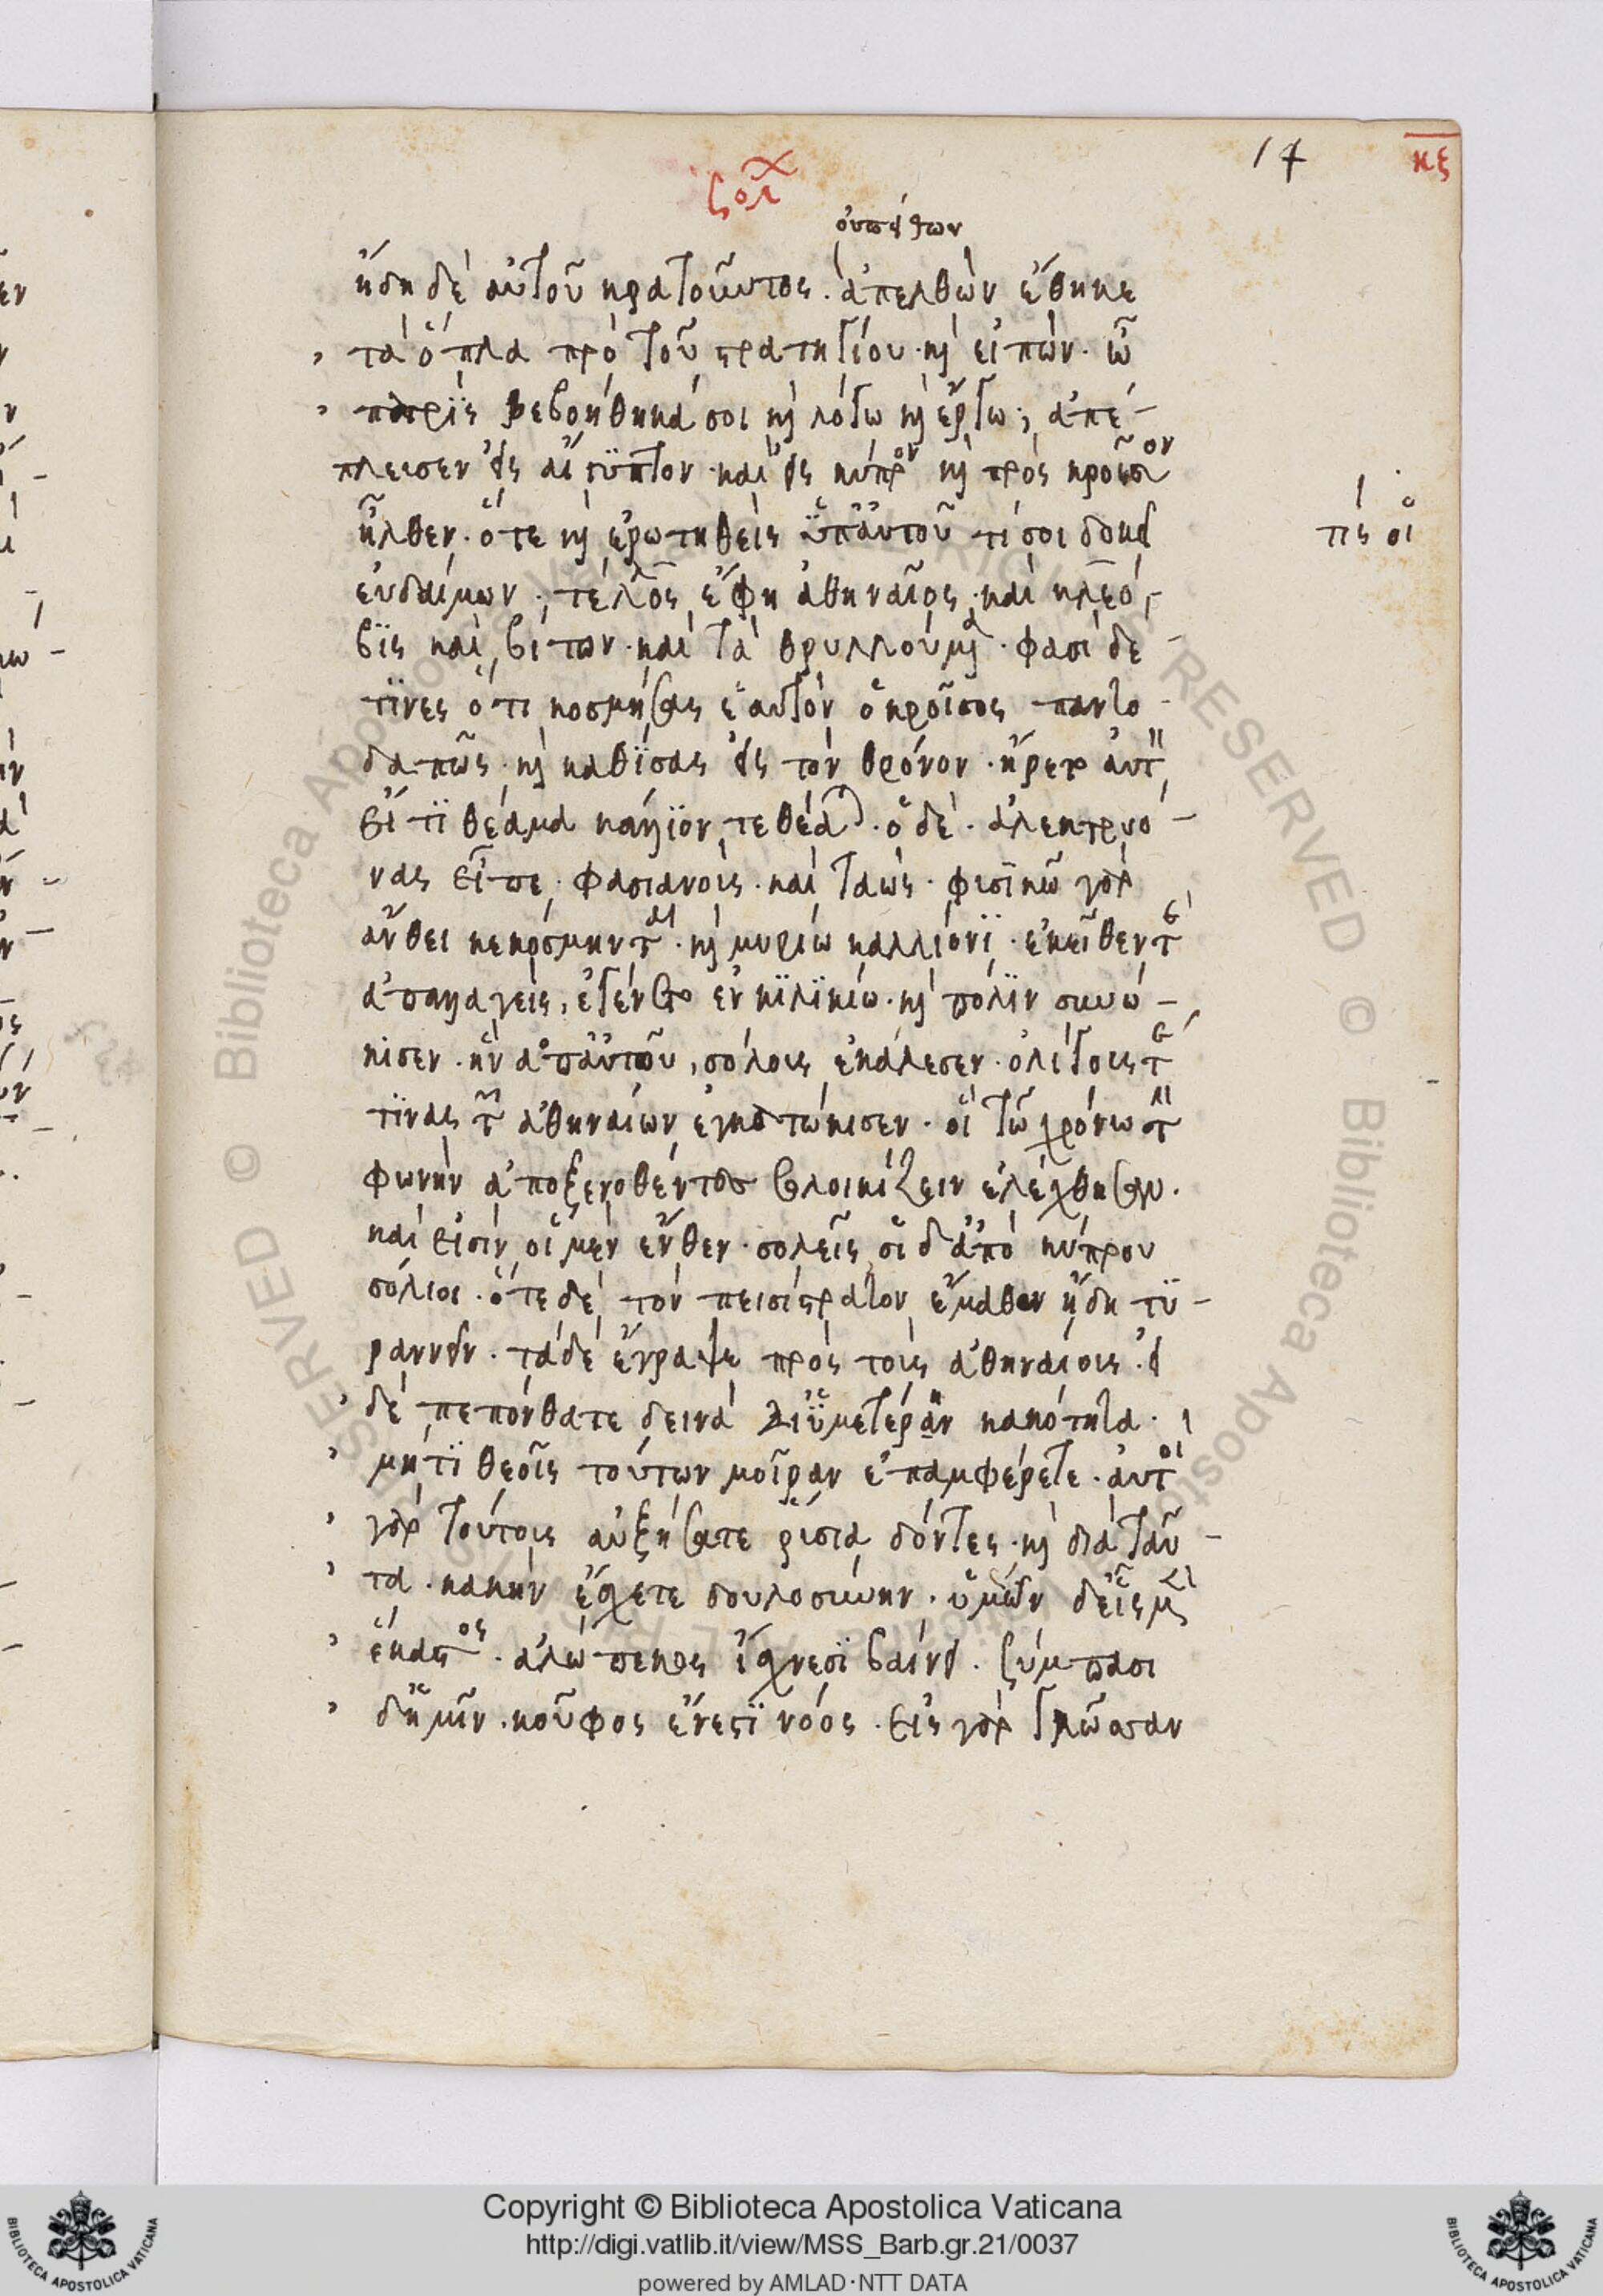 17
κξ
σολ
οὐπείθων
ἤδη δὲ αὐτοῦ κρατοῦντος. ἀπελθὼν ἔθηκε
τὰ ὅπλα πρὸ τοῦ στρατηγίου· κὶ εἰπὼν· ὦ
πατρὶς βεβοήθηκά σοι κὶ λόγω κὶ ἔργω· ἀπέ-
πλευσεν εἰς αἴγυπτον· καὶ εἰς κύπρον κὶ πρὸς κροῖσον
ἦλθεν· ὅτε κὶ ἐρωτηθεὶς ὑπαυτοῦ τί σοι δοκεῖ
εὐδαίμων· τέλλος ἔφη ἀθηναῖος· καὶ κλεό-
βϊς καὶ βίτων· καὶ τὰ θρυλλούμ· φασὶ δέ
τϊνες ὅτι κοσμήσας ἑαυτὸν ὁ κροῖσος παντο
δαπῶς· κὶ καθίσας εἰς τὸν θρόνον· ἤρετο αὐτ
εἴ τϊ θέαμα κάλλϊον τεθέα· ὁ δὲ· ἀλεκτρυό-
νας εἶπε· φασιανοὺς· καὶ ταὼς· φυσϊκῶ γὰρ
ἄνθει κεκόσμηνται· κὶ μυρίω καλλίονϊ· ἐκεῖθεν τε
ἀπαλλαγεὶς, ἐγένετο ἐν κϊλϊκίω· κὶ πόλϊν συνώ-
κισεν· ἣν ἀπαυτοῦ, σόλους ἐκάλεσεν· ὀλίγους τε
τϊνας τῶν ἀθηναίων ἐγκατώκισεν· οἳ τῶ χρόνω τὴν
φωνὴν ἀποξενοθέντες σολοικίζειν ἐλέχθησαν.
καὶ εἰσὶν οἱ μὲν ἔνθεν· σολεῖς οἱ δἀπὸ κύπρου
σόλιοι· ὅτε δὲ τὸν πεισίστρατον ἔμαθεν ἤδη τϋ-
ραννεῖν· τάδε ἔγραψε πρὸς τοὺς ἀθηναίους· εἰ
δὲ πεπόνθατε δεινὰ διϋμετέρην κακότητα·
μή τϊ θεοῖς τούτων μοῖραν ἐπαμφέρετε· αὐτοὶ
γὰρ τούτους αὐξήσατε ῥύσια δόντες· κὶ διὰ ταῦ-
τα· κακὴν ἔχετε δουλοσύνην· ὑμῶν δεἷς μὲν
ἕκαστος· ἀλώπεκος ἴχνεσϊ βαίνει· ξύμπασι
δὑμῖν· κοῦφος ἔνεστϊ νόος· εἰς γὰρ γλῶσσαν
Copyright © Biblioteca Apostolica Vaticana
http://digi.vatlib.it/view/MSS_Barb.gr.21/0037
powered by AMLAD·NTT DATA